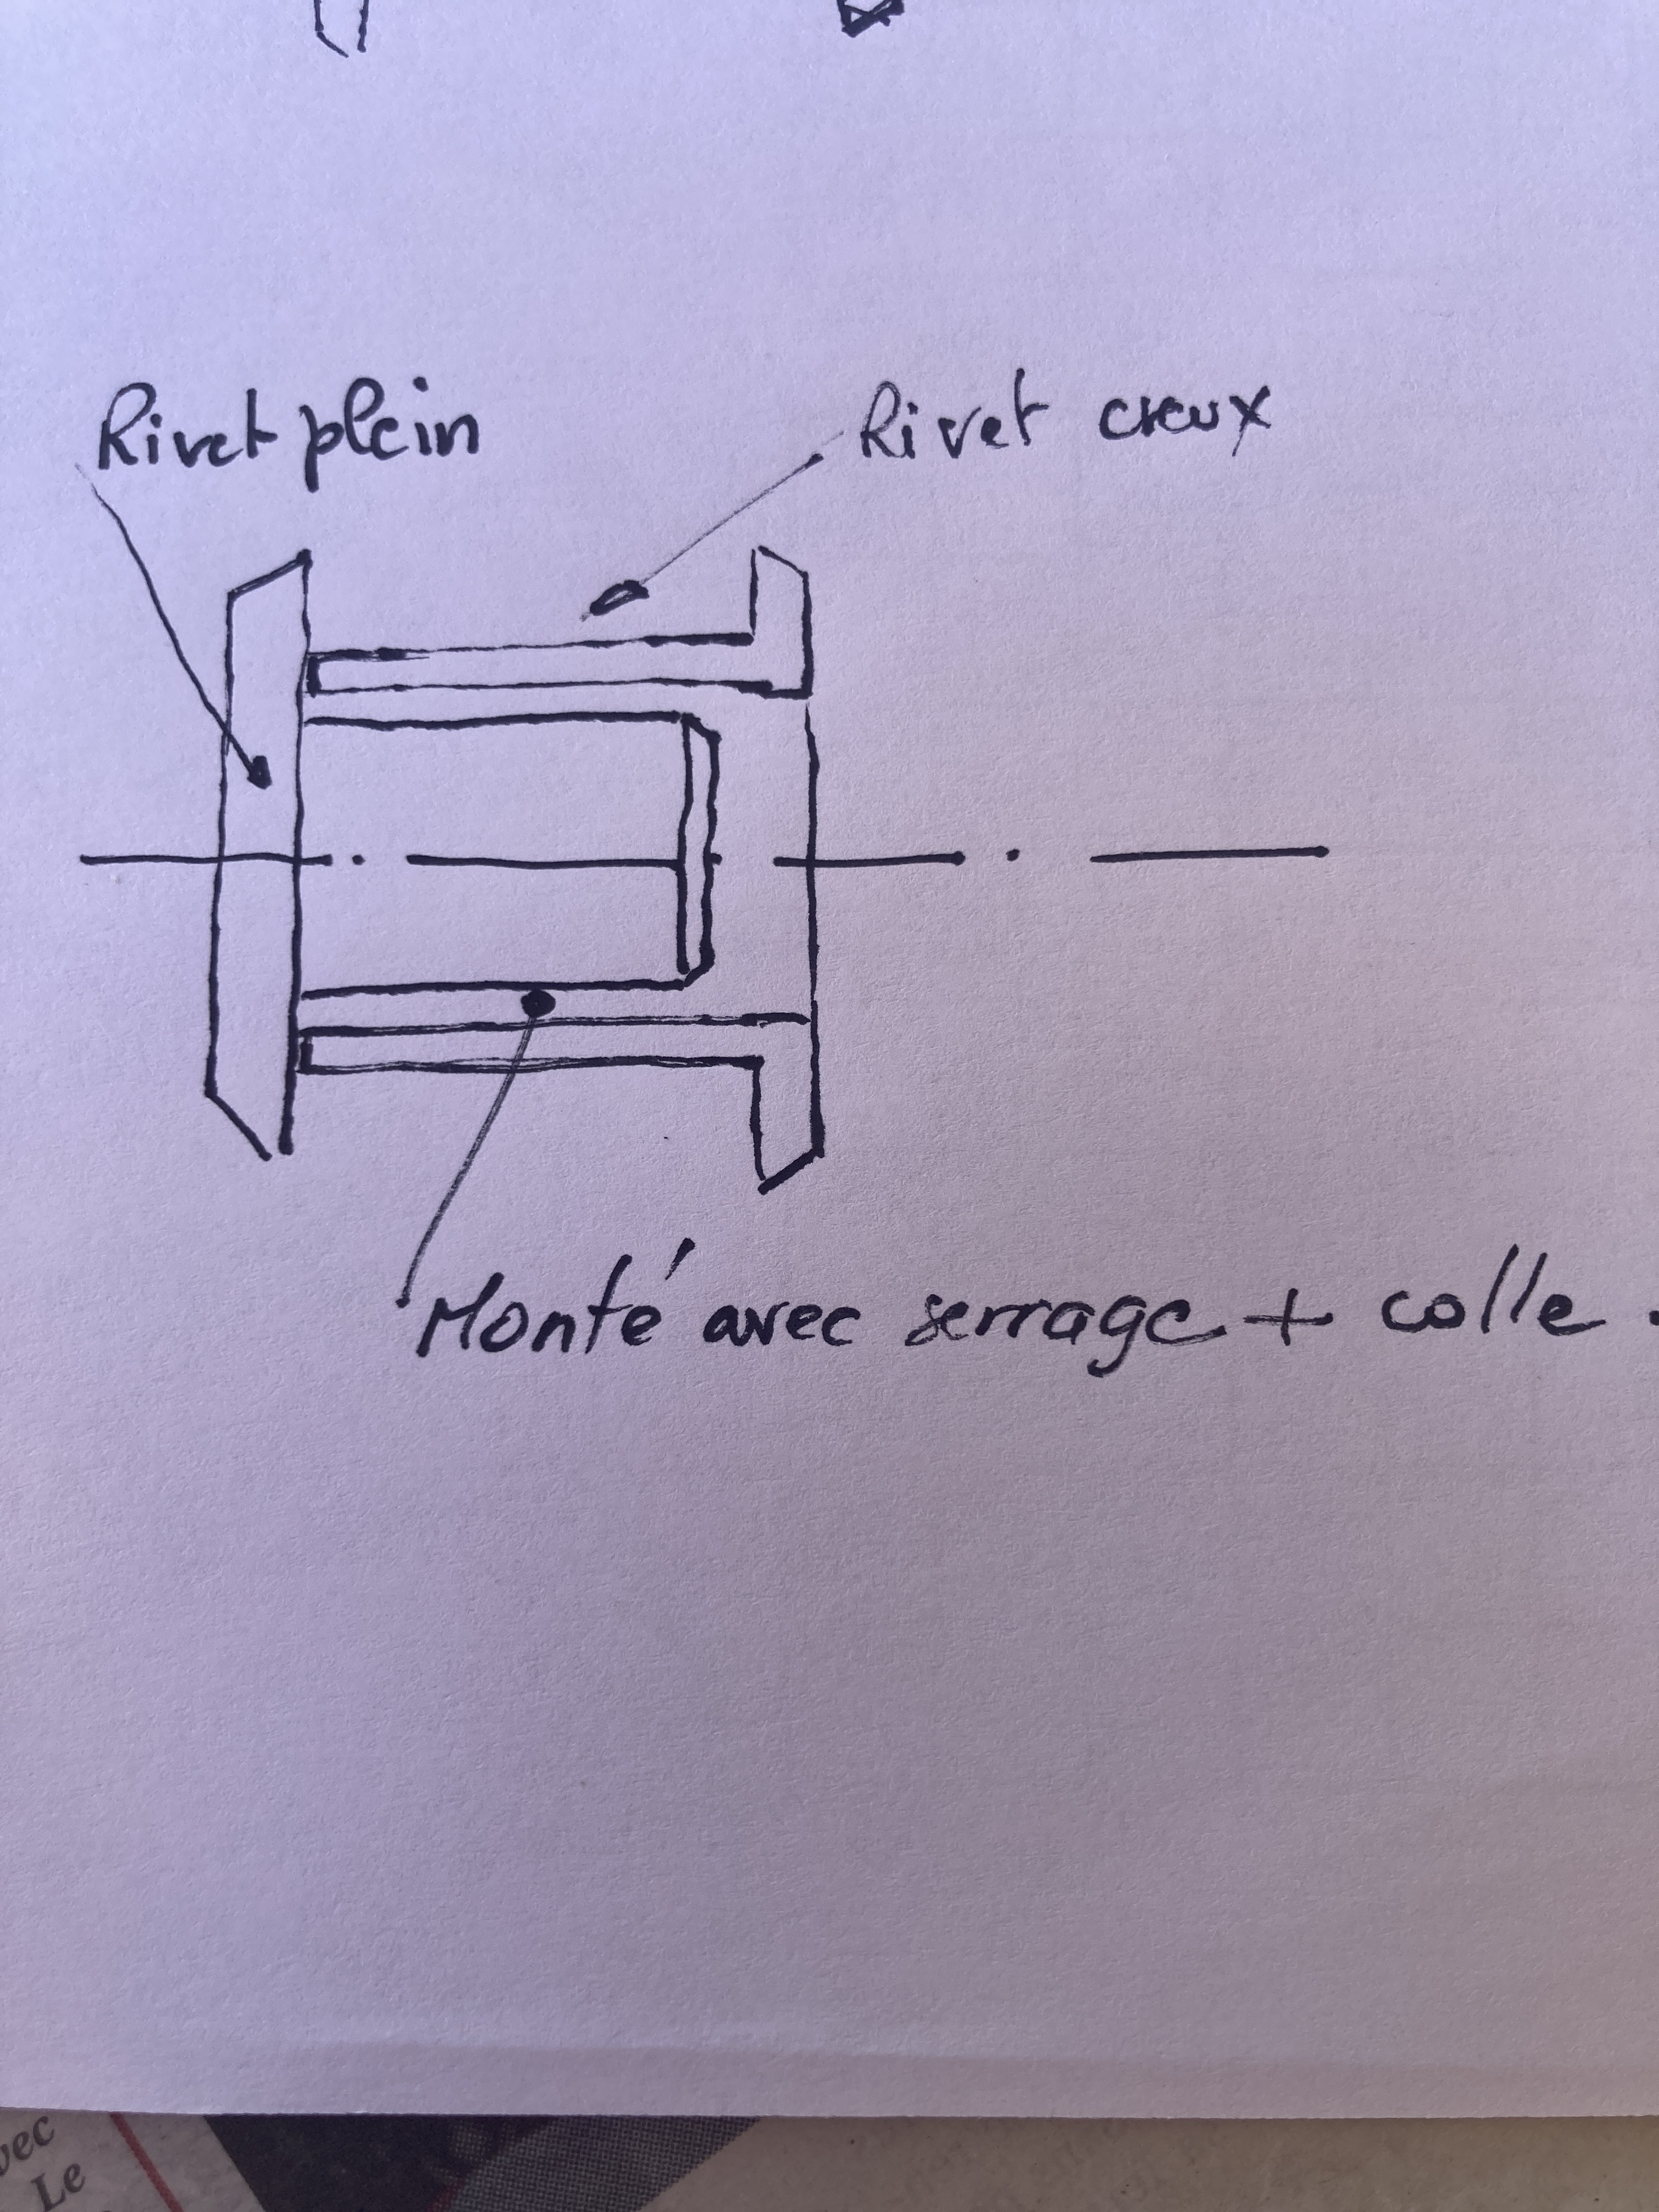 Rivet plein
Rivet creux
Monté avec serrage + colle.
vec
Le